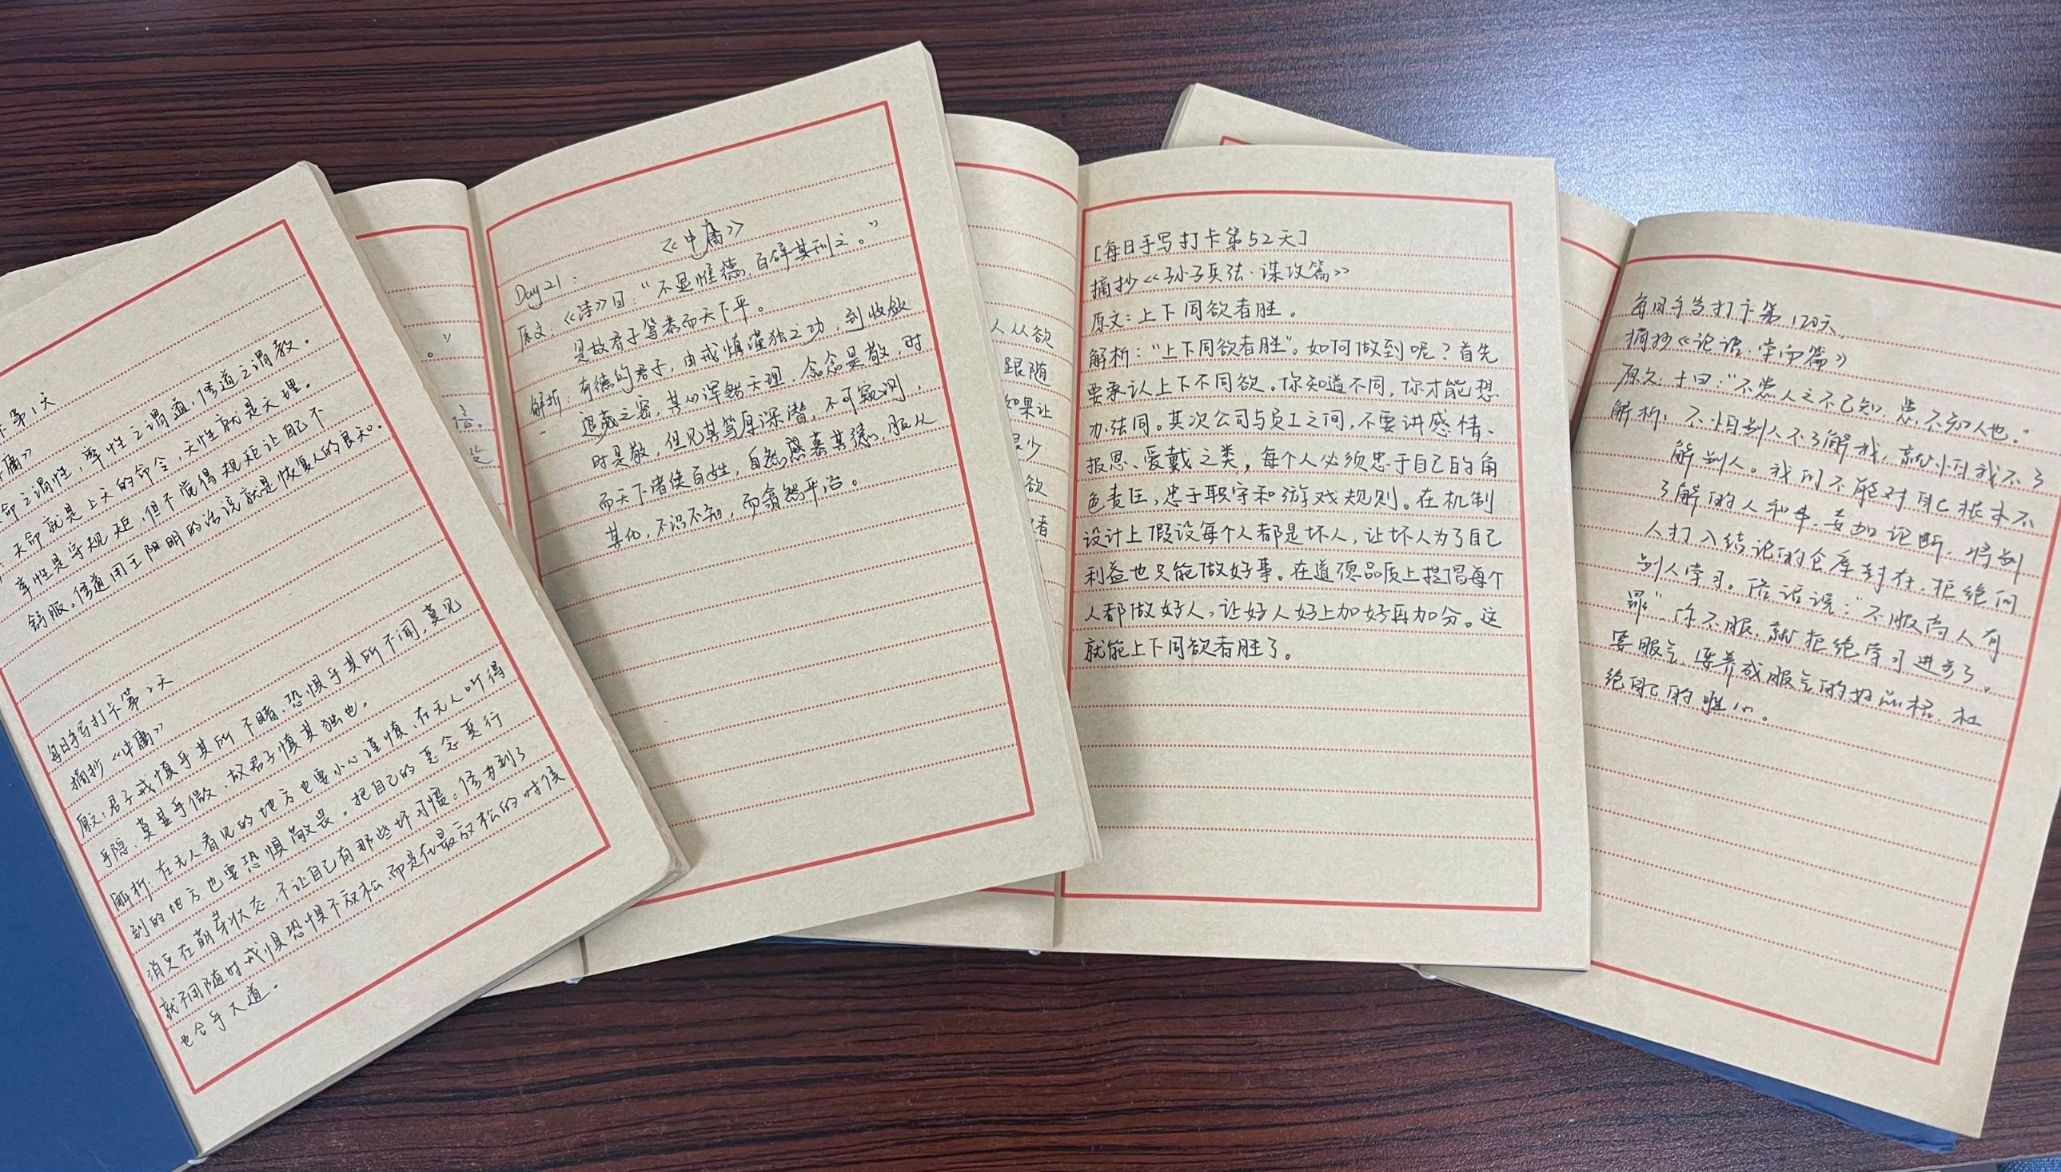 卡第1天
庸》
命之谓性，率性之谓道，修道之谓教。
天命就是上天的命令，天性就是天理。
率性是守规矩，但不觉得规矩让自己不
舒服。修道用王阳明的话说就是恢复人的良知。
每日手写打卡第2天
摘抄《中庸》
原文：君子戒慎乎其所不睹，恐惧乎其所不闻，莫见
乎隐，莫显乎微，故君子慎其独也。
解析：在无人看见的地方也要小心谨慎，在无人听得
到的地方也要恐惧敬畏。把自己的恶念恶行
消灭在萌芽状态，不让自己有那些坏习惯。修为到了
就不用随时戒慎恐惧不放松，而是在最放松的时候
也合乎大道。
。”
《中庸》
Day21：
原文：《诗》曰：“不显惟德，百辟其刑之。”
是故君子笃恭而天下平。
解析：有德的君子，由戒慎谨独之功，到收敛
退藏之密，其心浑然天理，念念是敬，时
时是敬，但见其笃厚深潜，不可窥测，
而天下诸侯百姓，自然感慕其德，服从
其化，不识不知，而翕然平治。
人从欲
跟随
如果让
很少
欲
者
[每日手写打卡第52天]
摘抄《孙子兵法·谋攻篇》
原文：上下同欲者胜。
解析：“上下同欲者胜”。如何做到呢？首先
要承认上下不同欲。你知道不同，你才能想
办法同。其次公司与员工之间，不要讲感情、
报恩、爱戴之类，每个人必须忠于自己的角
色责任，忠于职守和游戏规则。在机制
设计上假设每个人都是坏人，让坏人为了自己
利益也只能做好事。在道德品质上提倡每个
人都做好人，让好人好上加好再加分。这
就能上下同欲者胜了。
每日手写打卡第120天
摘抄《论语·学而篇》
原文：子曰：“不患人之不己知，患不知人也。”
解析：不怕别人不了解我，就怕我不了
解别人。我们不能对自己根本不
了解的人和事，妄加论断，将别
人打入结论的仓库封存，拒绝向
别人学习。俗话说：“不服高人有
罪”你不服，就拒绝学习进步了。
要服气，保养成服气的好品格，杜
绝自己的胜心。